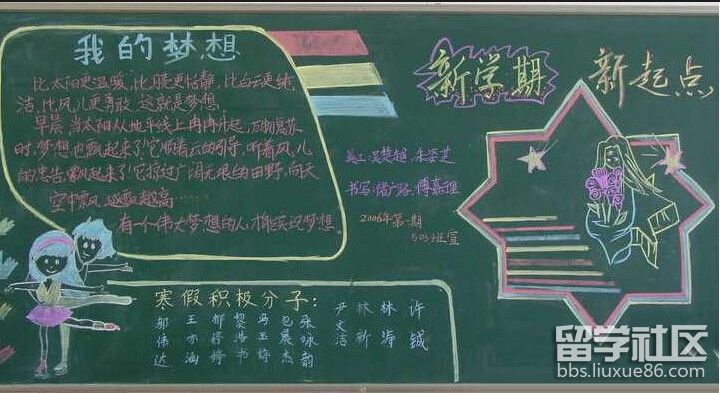 我的梦想
比太阳更温暖,比月亮更恬静,比白云更纯
洁,比风儿更勇敢 这就是梦想,
早晨,当太阳从地平线上冉冉升起,万物复苏
时,梦想也飘起来了!它顺着云的引导,听着风儿
的忠告,飘起来了!它掠过广阔无垠的田野,向天
空中飘,越飘越高……
有一个伟大梦想的人才能实现梦想
新学期 新起点
美工:吴楚越、朱姿芷
书写:潘广路、傅嘉程
2006年第一期
503班宣
寒假积极分子:
郭 王 郁 黎 马 包 张 尹 林 林 许
伟 亦 婷 浩 玉 晨 咏 文 新 涛 钺
达 涵 婷 书 婷 杰 韵 洁
留学社区
bbs.liuxue86.com